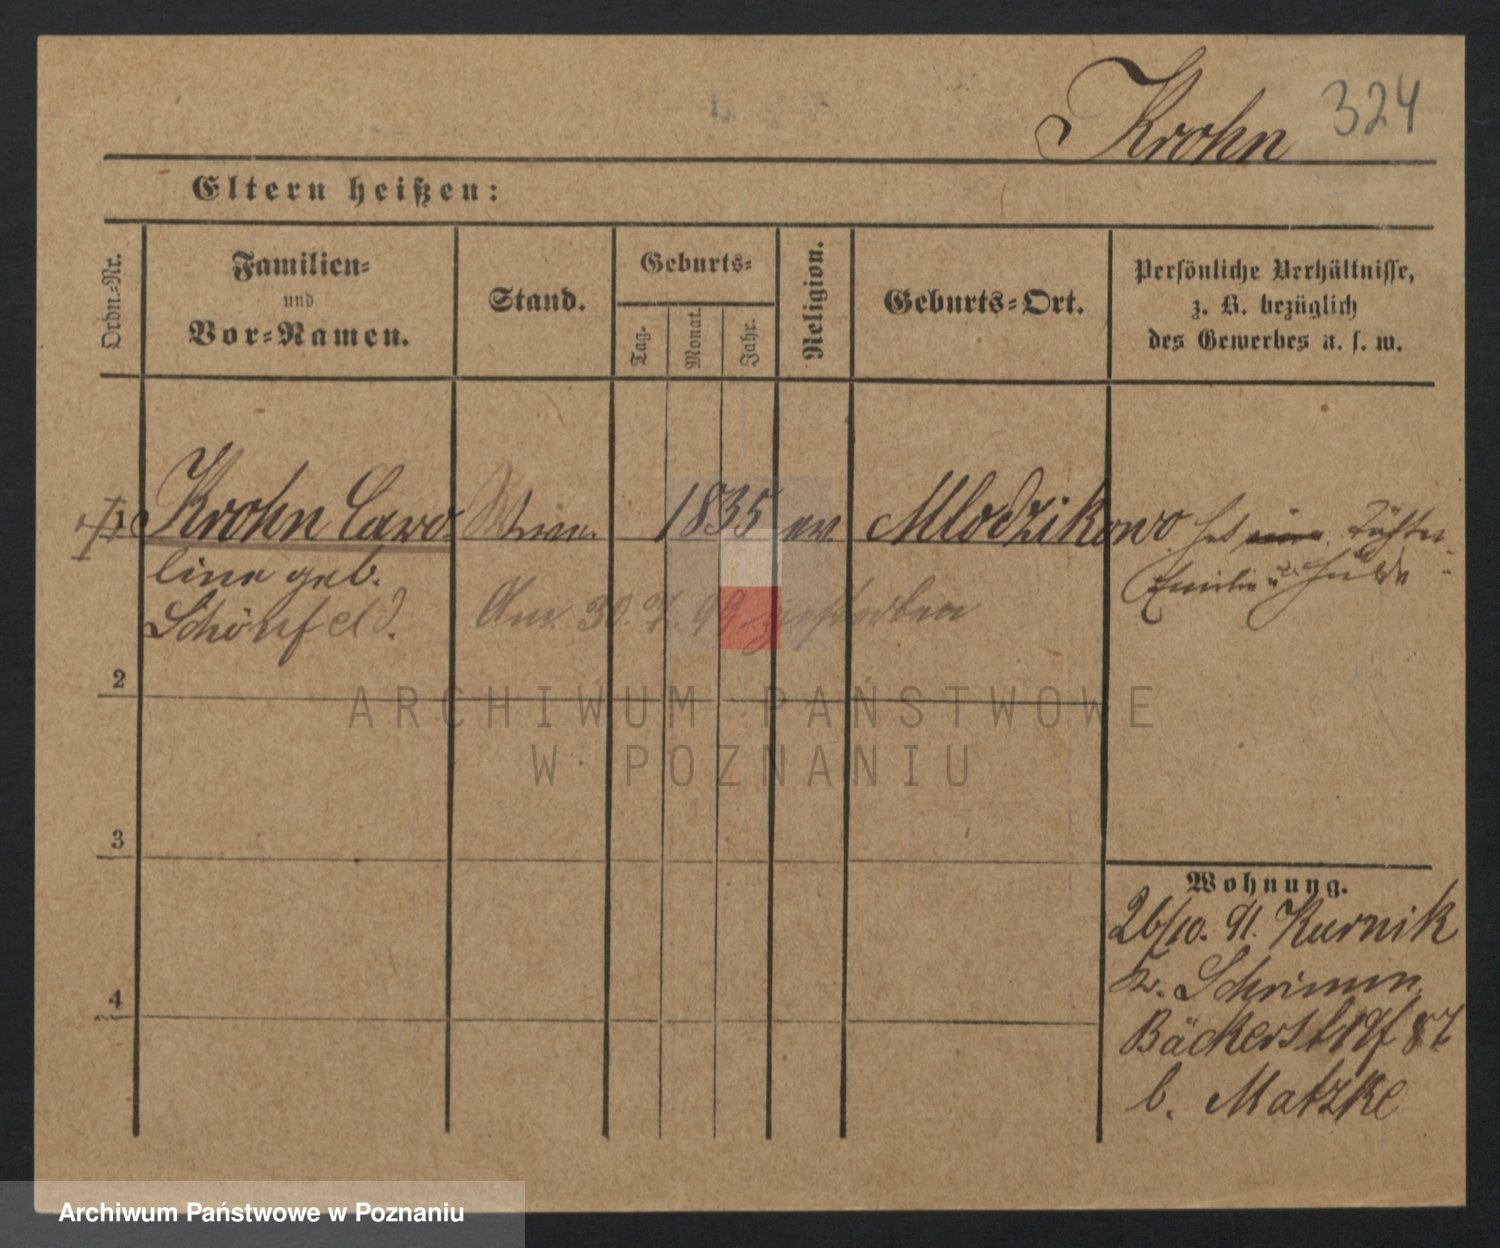 Krohn 324
Eltern heißen:
Ordn.-Nr.
Familien-
und
Vor-Namen.
Stand.
Geburts-
Tag-
Monat.
Jahr.
Religion.
Geburts-Ort.
Persönliche Verhältnisse,
z. B. bezüglich
des Gewerbes u. s. w.
1 Krohn Caro- 1835 ev. Mlodzikowo hat Töchter
line geb. Emilie u. Hulda
Schönfeld. Am 30. 7. 99 gestorben
2
3
4
Wohnung.
26/10. 91. Kurnik
Kr. Schrimm
Bäckerstr
b. Matzke
ARCHIWUM PAŃSTWOWE
W POZNANIU
Archiwum Państwowe w Poznaniu